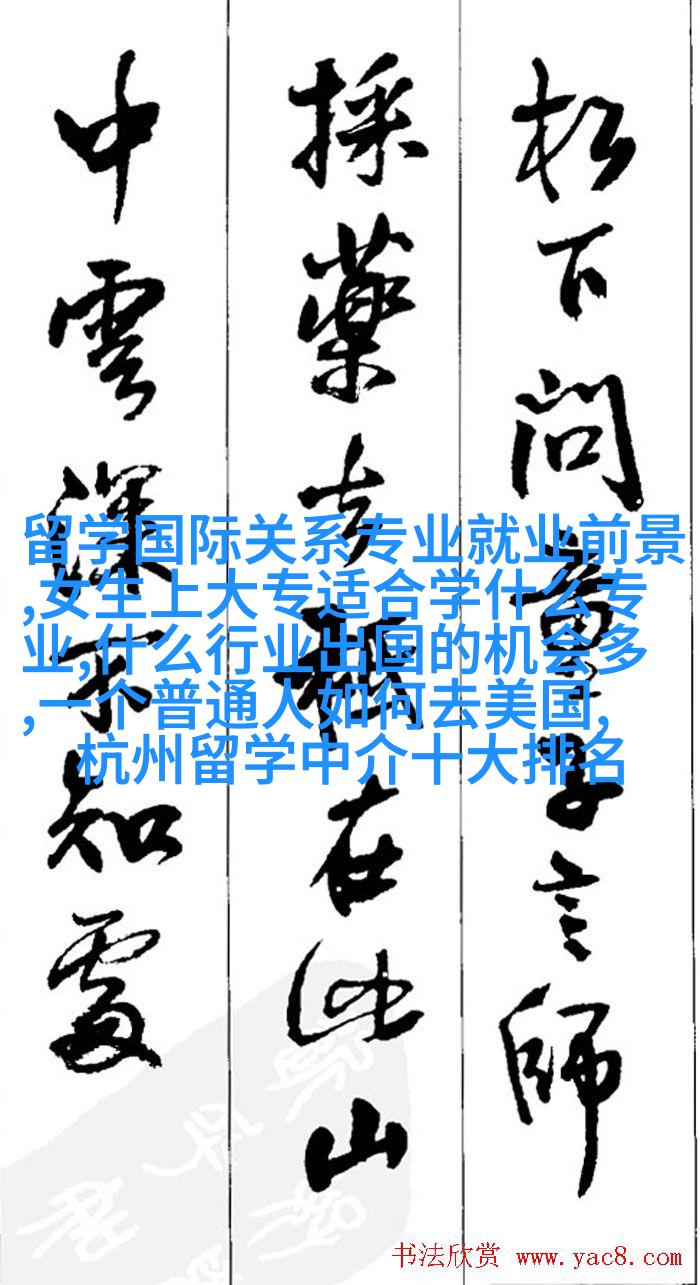 松下问童子言師
採藥去祇在此山
中雲深不知處
留学国际关系专业就业前景
,女生上大专适合学什么专
业,什么行业出国的机会多
,一个普通人如何去美国,
杭州留学中介十大排名
书法欣赏 www.yac8.com